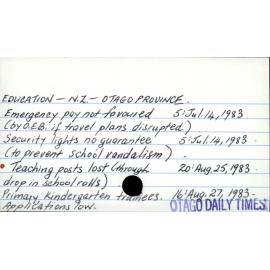 EDUCATION - N.Z. - OTAGO PROVINCE.
Emergency pay not favoured 5: Jul. 14, 1983
(by O.E.B. if travel plans disrupted)
Security lights no guarantee 5: Jul. 14, 1983.
(to prevent school vandalism)
• Teaching posts lost (through 20: Aug. 25, 1983
drop in school rolls)
Primary, Kindergarten trainees. 16: Aug. 27, 1983.
Applications low. OTAGO DAILY TIMES